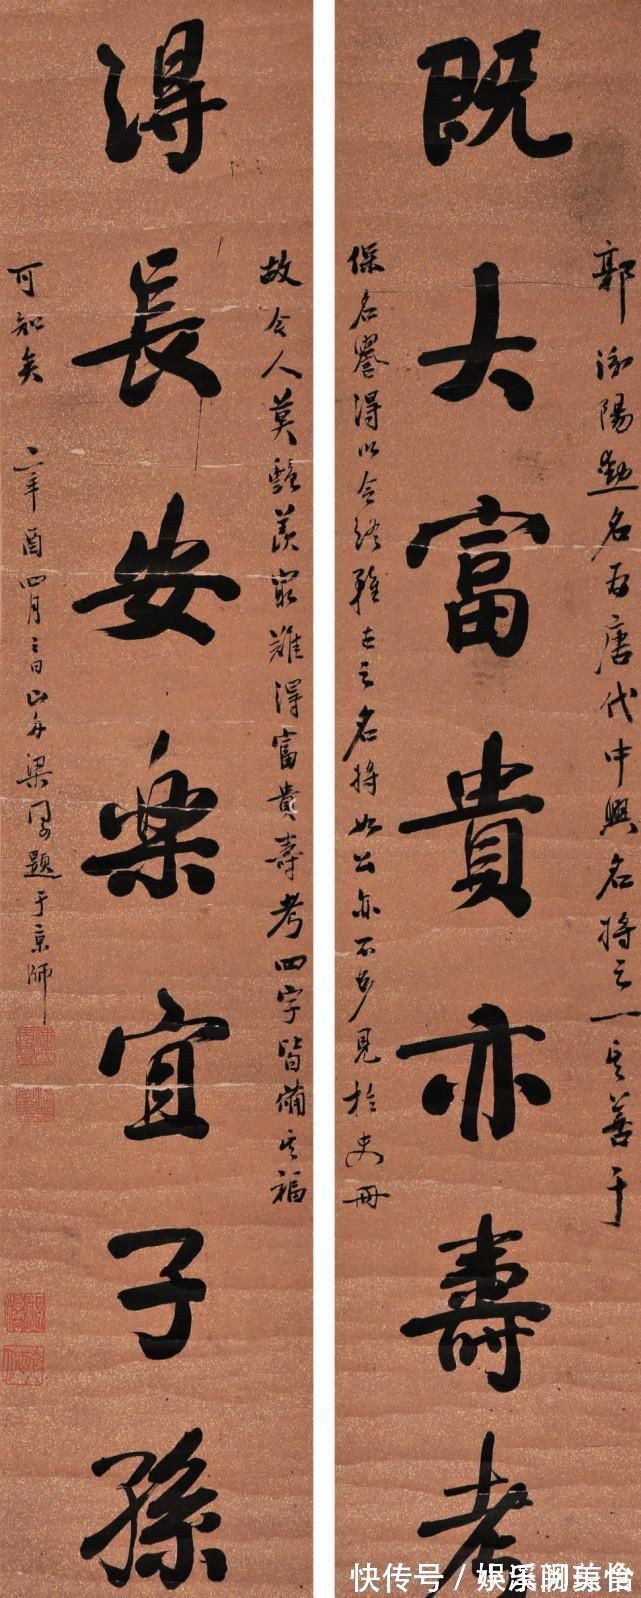 既大富貴亦壽考
郭汾陽勳名為唐代中興名將之一其善于
保名譽得以令終雖古之名將如公亦不多見於史冊
得長安樂宜子孫
故令人莫艷羨最難得富貴壽考四字皆備其福
可知矣
辛酉四月 山舟梁同書題于京師
快传号/娱溪